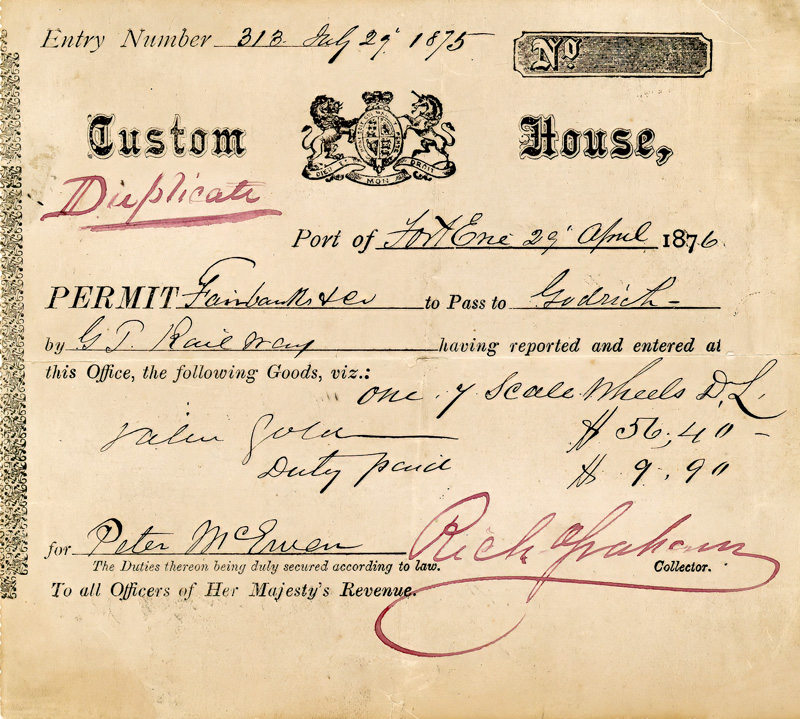 Entry Number 313 July 29' 1875
No.
Custom House,
DIEU ET MON DROIT
Duplicate
Port of Fort Erie 29' April 1876.
PERMIT Fairbanks & Co to Pass to Godrich
by G T. Railway having reported and entered at
this Office, the following Goods, viz.:
one 7 Scale Wheels D, L.
Value Gold $ 56,40
Duty paid $ 9.90
for Peter McEwen Rich Graham
The Duties thereon being duly secured according to law. Collector.
To all Officers of Her Majesty's Revenue.